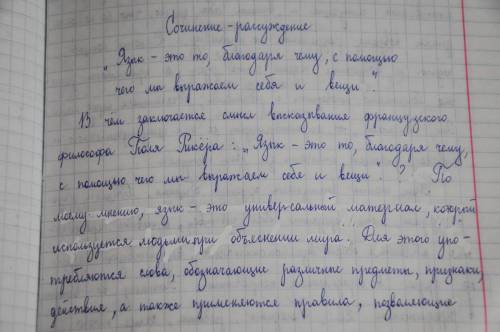 Сочинение - рассуждение
„Язык - это то, благодаря чему, с помощью
чего мы выражаем себя и вещи".
В чем заключается смысл высказывания французского
философа Поля Рикёра: „Язык - это то, благодаря чему,
с помощью чего мы выражаем себя и вещи"? По
моему мнению, язык - это универсальный материал, который
используется людьми при объяснении мира. Для этого упо-
требляются слова, обозначающие различные предметы, признаки,
действия, а также применяются правила, позволяющие